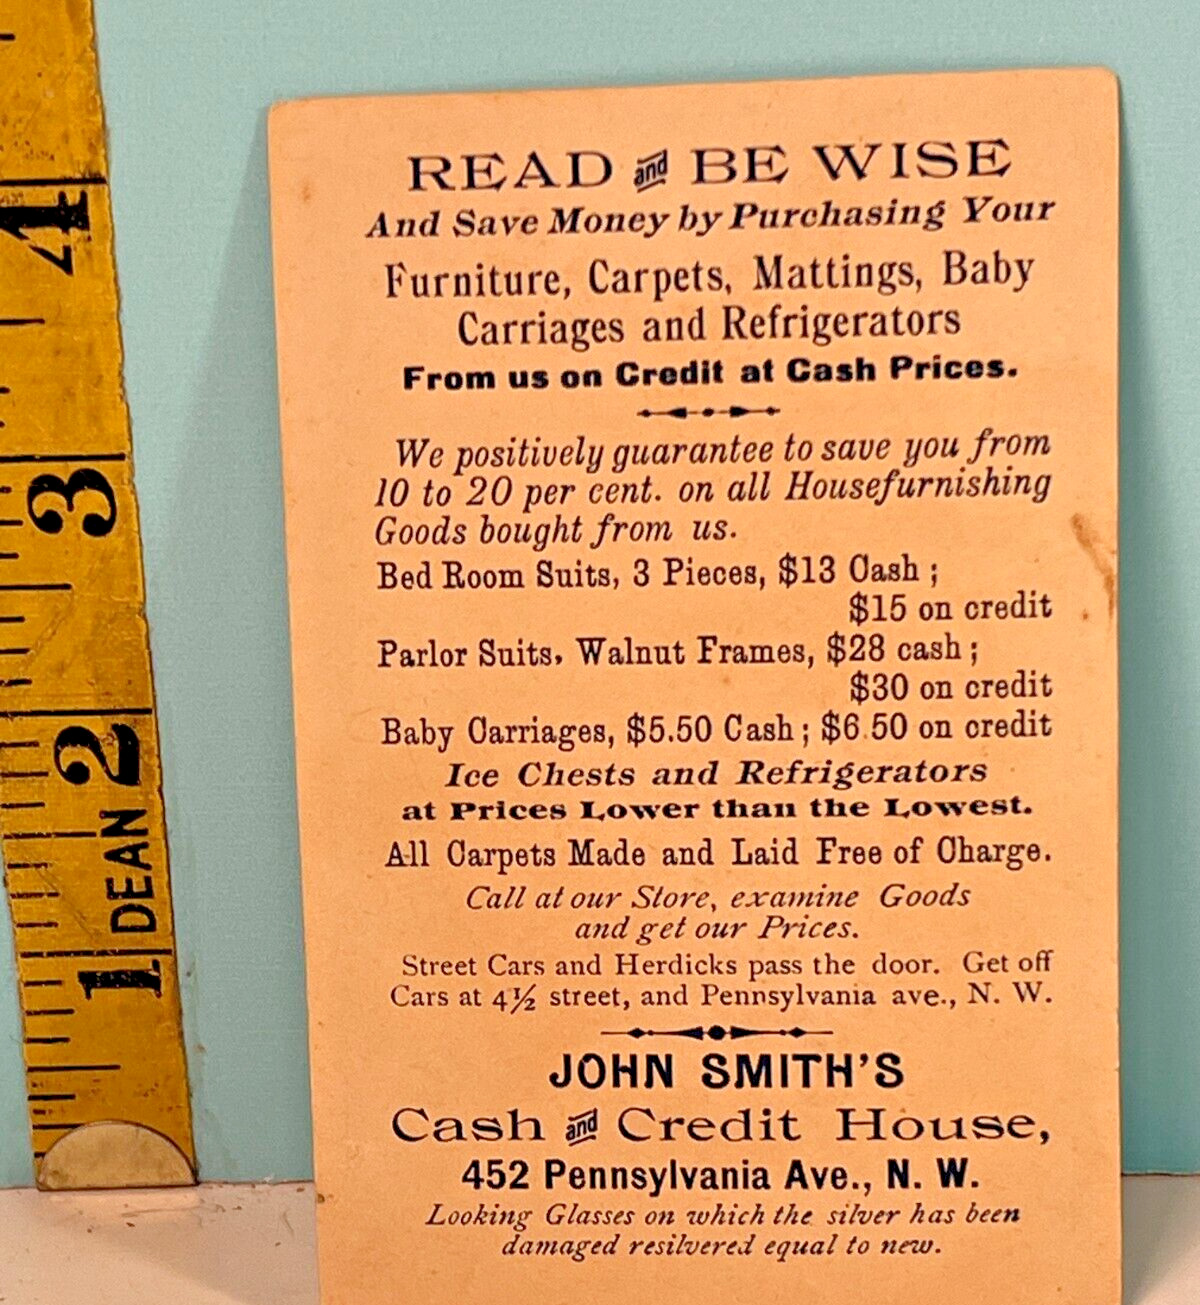 READ and BE WISE
And Save Money by Purchasing Your
Furniture, Carpets, Mattings, Baby
Carriages and Refrigerators
From us on Credit at Cash Prices.
We positively guarantee to save you from
10 to 20 per cent. on all Housefurnishing
Goods bought from us.
Bed Room Suits, 3 Pieces, $13 Cash ;
$15 on credit
Parlor Suits, Walnut Frames, $28 cash ;
$30 on credit
Baby Carriages, $5.50 Cash ; $6.50 on credit
Ice Chests and Refrigerators
at Prices Lower than the Lowest.
All Carpets Made and Laid Free of Charge.
Call at our Store, examine Goods
and get our Prices.
Street Cars and Herdicks pass the door. Get off
Cars at 4½ street, and Pennsylvania ave., N. W.
JOHN SMITH'S
Cash and Credit House,
452 Pennsylvania Ave., N. W.
Looking Glasses on which the silver has been
damaged resilvered equal to new.
4
3
2
DEAN
1